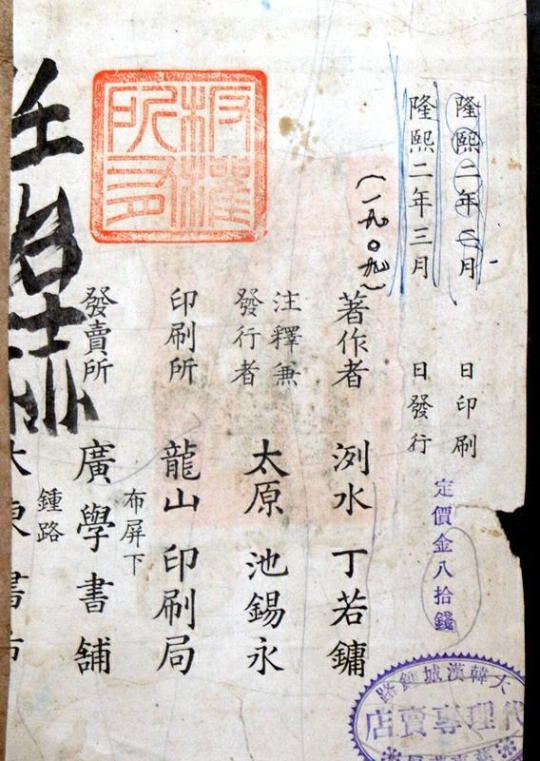 隆熙二年二月 日印刷
隆熙二年三月 日發行
定價金八拾錢
(一九〇九)
著作者 洌水 丁若鏞
注釋兼
發行者 太原 池錫永
印刷所 龍山印刷局
布屏下
發賣所 廣學書舖
鍾路
大東書市
板權
所有
大韓漢城鍾路
代理專賣店